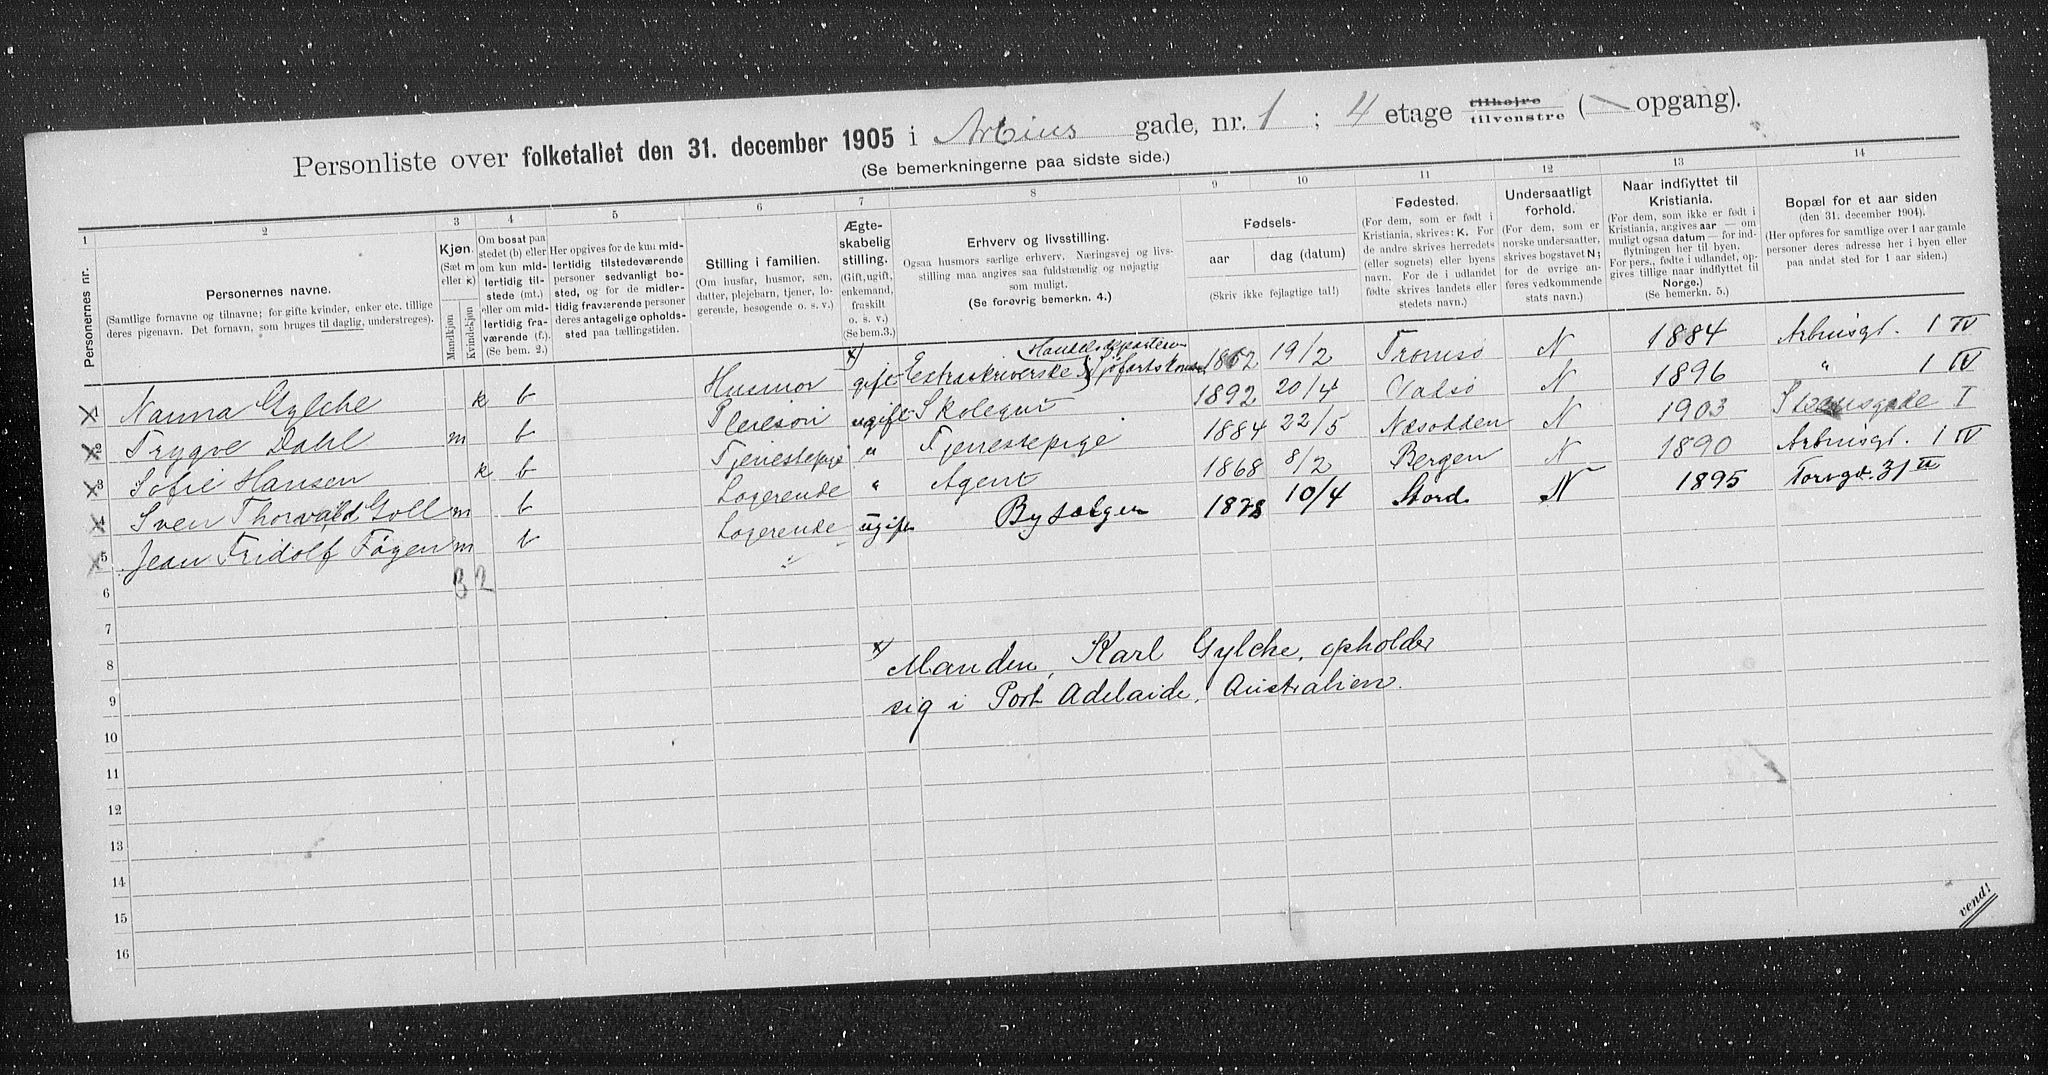 Personliste over folketallet den 31. december 1905 i Arbins gade, nr. 1 ; 4 etage tilhøjre tilvenstre ( opgang).
(Se bemerkningerne paa sidste side.)
1 2 3 4 5 6 7 8 9 10 11 12 13 14
Personernes nr.
Personernes navne.
(Samtlige fornavne og tilnavne; for gifte kvinder, enker etc. tillige
deres pigenavn. Det fornavn, som bruges til daglig, understreges).
Kjøn.
(Sæt m
eller k)
Mandkjøn
Kvindekjøn
Om bosat paa
stedet (b) eller
om kun mid-
lertidig til-
stede (mt.)
eller om mid-
lertidig fra-
værende (f.)
(Se bem. 2.)
Her opgives for de kun mid-
lertidig tilstedeværende
personer sedvanligt bo-
sted, og for de midler-
tidig fraværende personer
deres antagelige opholds-
sted paa tællingstiden.
Stilling i familien.
(Om husfar, husmor, søn,
datter, plejebarn, tjener, lo-
gerende, besøgende o. s. v.)
Ægte-
skabelig
stilling.
(Gift, ugift,
enkemand,
fraskilt
o. s. v.)
(Se bem.3.)
Erhverv og livsstilling.
Ogsaa husmors særlige erhverv. Næringsvej og livs-
stilling maa angives saa fuldstændig og nøjagtig
som muligt.
(Se forøvrig bemerkn. 4.)
Fødsels-
aar dag (datum)
(Skriv ikke fejlagtige tal!)
Fødested.
(For dem, som er født i
Kristiania, skrives: K. For
de andre skrives herredets
(eller sognets) eller byens
navn. For de i udlandet
fødte skrives landets eller
stedets navn.)
Undersaatligt
forhold.
(For dem, som er
norske undersaatter,
skrives bogstavet N;
for de øvrige an-
føres vedkommende
stats navn.)
Naar indflyttet til
Kristiania.
(For dem, som ikke er født i
Kristiania, angives aar — om
muligt ogsaa datum — for ind-
flytningen her til byen.
For pers., fødte i udlandet, op-
gives tillige naar indflyttet til
Norge.)
(Se bemerkn. 5.)
Bopæl for et aar siden
(den 31. december 1904).
(Her opføres for samtlige over 1 aar gamle
personer deres adresse her i byen eller
paa andet sted for 1 aar siden.)
1 Nanna Gylche k b Husmor x) gift Extraskriverske Handelsdepartem Sjøfartskontor 1862 19/2 Tromsø N 1884 Arbinsgt. 1 IV
2 Trygve Dahl m b Pleiesøn ugift Skolegut 1892 20/4 Vadsø N 1896 " 1 IV
3 Sofie Hansen k b Tjenestepige " Tjenestepige 1884 22/5 Næsodden N 1903 Steensgade I
4 Sven Thorvald Goll m b Logerende " Agent 1868 8/2 Bergen N 1890 Arbinsgt. 1 IV
5 Jean Fridolf Fögen m b Logerende ugift Bysælger 1878 10/4 Stord N 1895 Torvgd. 31 II
6 3 2
7
8 x) Manden, Karl Gylche, opholder
9 sig i Port Adelaide, Australien.
10
11
12
13
14
15
16
vend!